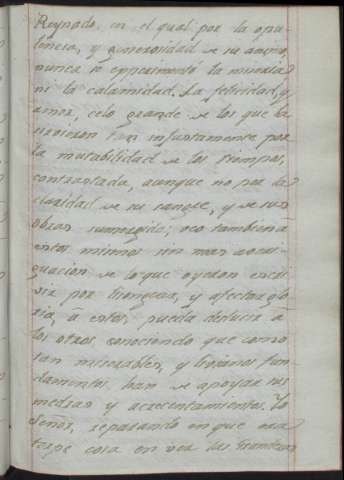 Reynado, en el qual por la opu-
lencia, y generosidad de su animo,
nunca se experimentó la miseria
ni la calamidad. La felicidad, y
amor, celo grande de los que la
sirvieron tan infustamente por
la mutabilidad de los tiempos,
contrastada, aunque no por la
claridad de su sangre, y de sus
obras sumergida; oco tambien à
estos mismos sin mas
guacion de lo que oyeron
por y afectar glo
ria, à estos, pueda deducir à
los otros, conociendo que como
tan miserables, y bajanos fun-
damentos, han de apoyar sus
medras y acrecentamientos. Yo
Señor, reparando en que
cosa en ver las